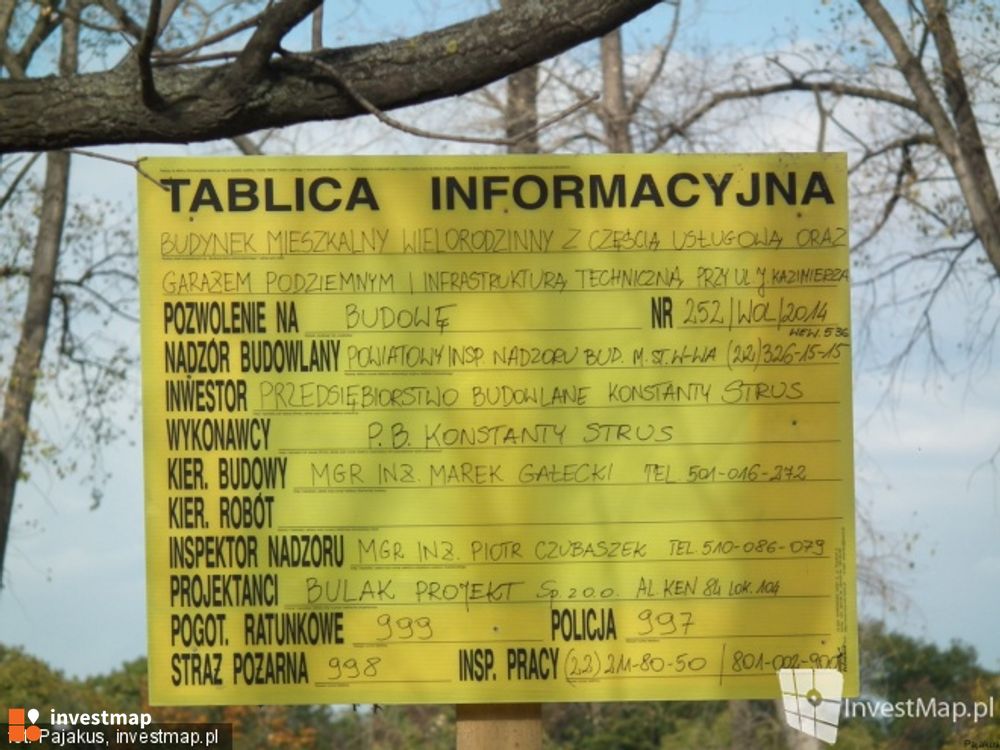 TABLICA INFORMACYJNA
BUDYNEK MIESZKALNY WIELORODZINNY Z CZĘŚCIĄ USŁUGOWĄ ORAZ
GARAŻEM PODZIEMNYM I INFRASTRUKTURĄ TECHNICZNĄ PRZY UL J KAZIMIERZA
POZWOLENIE NA BUDOWĘ NR 252/WOL/2014
WEW. 536
NADZÓR BUDOWLANY POWIATOWY INSP. NADZORU BUD. M. ST. W-WA (22)326-15-15
INWESTOR PRZEDSIĘBIORSTWO BUDOWLANE KONSTANTY STRUS
WYKONAWCY P.B. KONSTANTY STRUS
KIER. BUDOWY MGR INŻ. MAREK GAŁECKI TEL. 501-016-272
KIER. ROBÓT
INSPEKTOR NADZORU MGR INŻ. PIOTR CZUBASZEK TEL. 510-086-079
PROJEKTANCI BULAK PROJEKT Sp. z o.o. AL KEN 84 LOK. 104
POGOT. RATUNKOWE 999 POLICJA 997
STRAŻ POŻARNA 998 INSP. PRACY (22) 211-80-50 / 801-002-900
InvestMap.pl
investmap
fot. Pajakus, investmap.pl
Pajakus